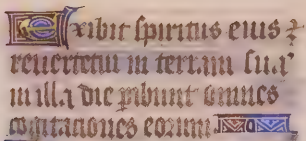 Exibit spiritus eius ⁊
reuertetur in terram sua'
in illa die ꝑibunt omnes
cogitationes eorum